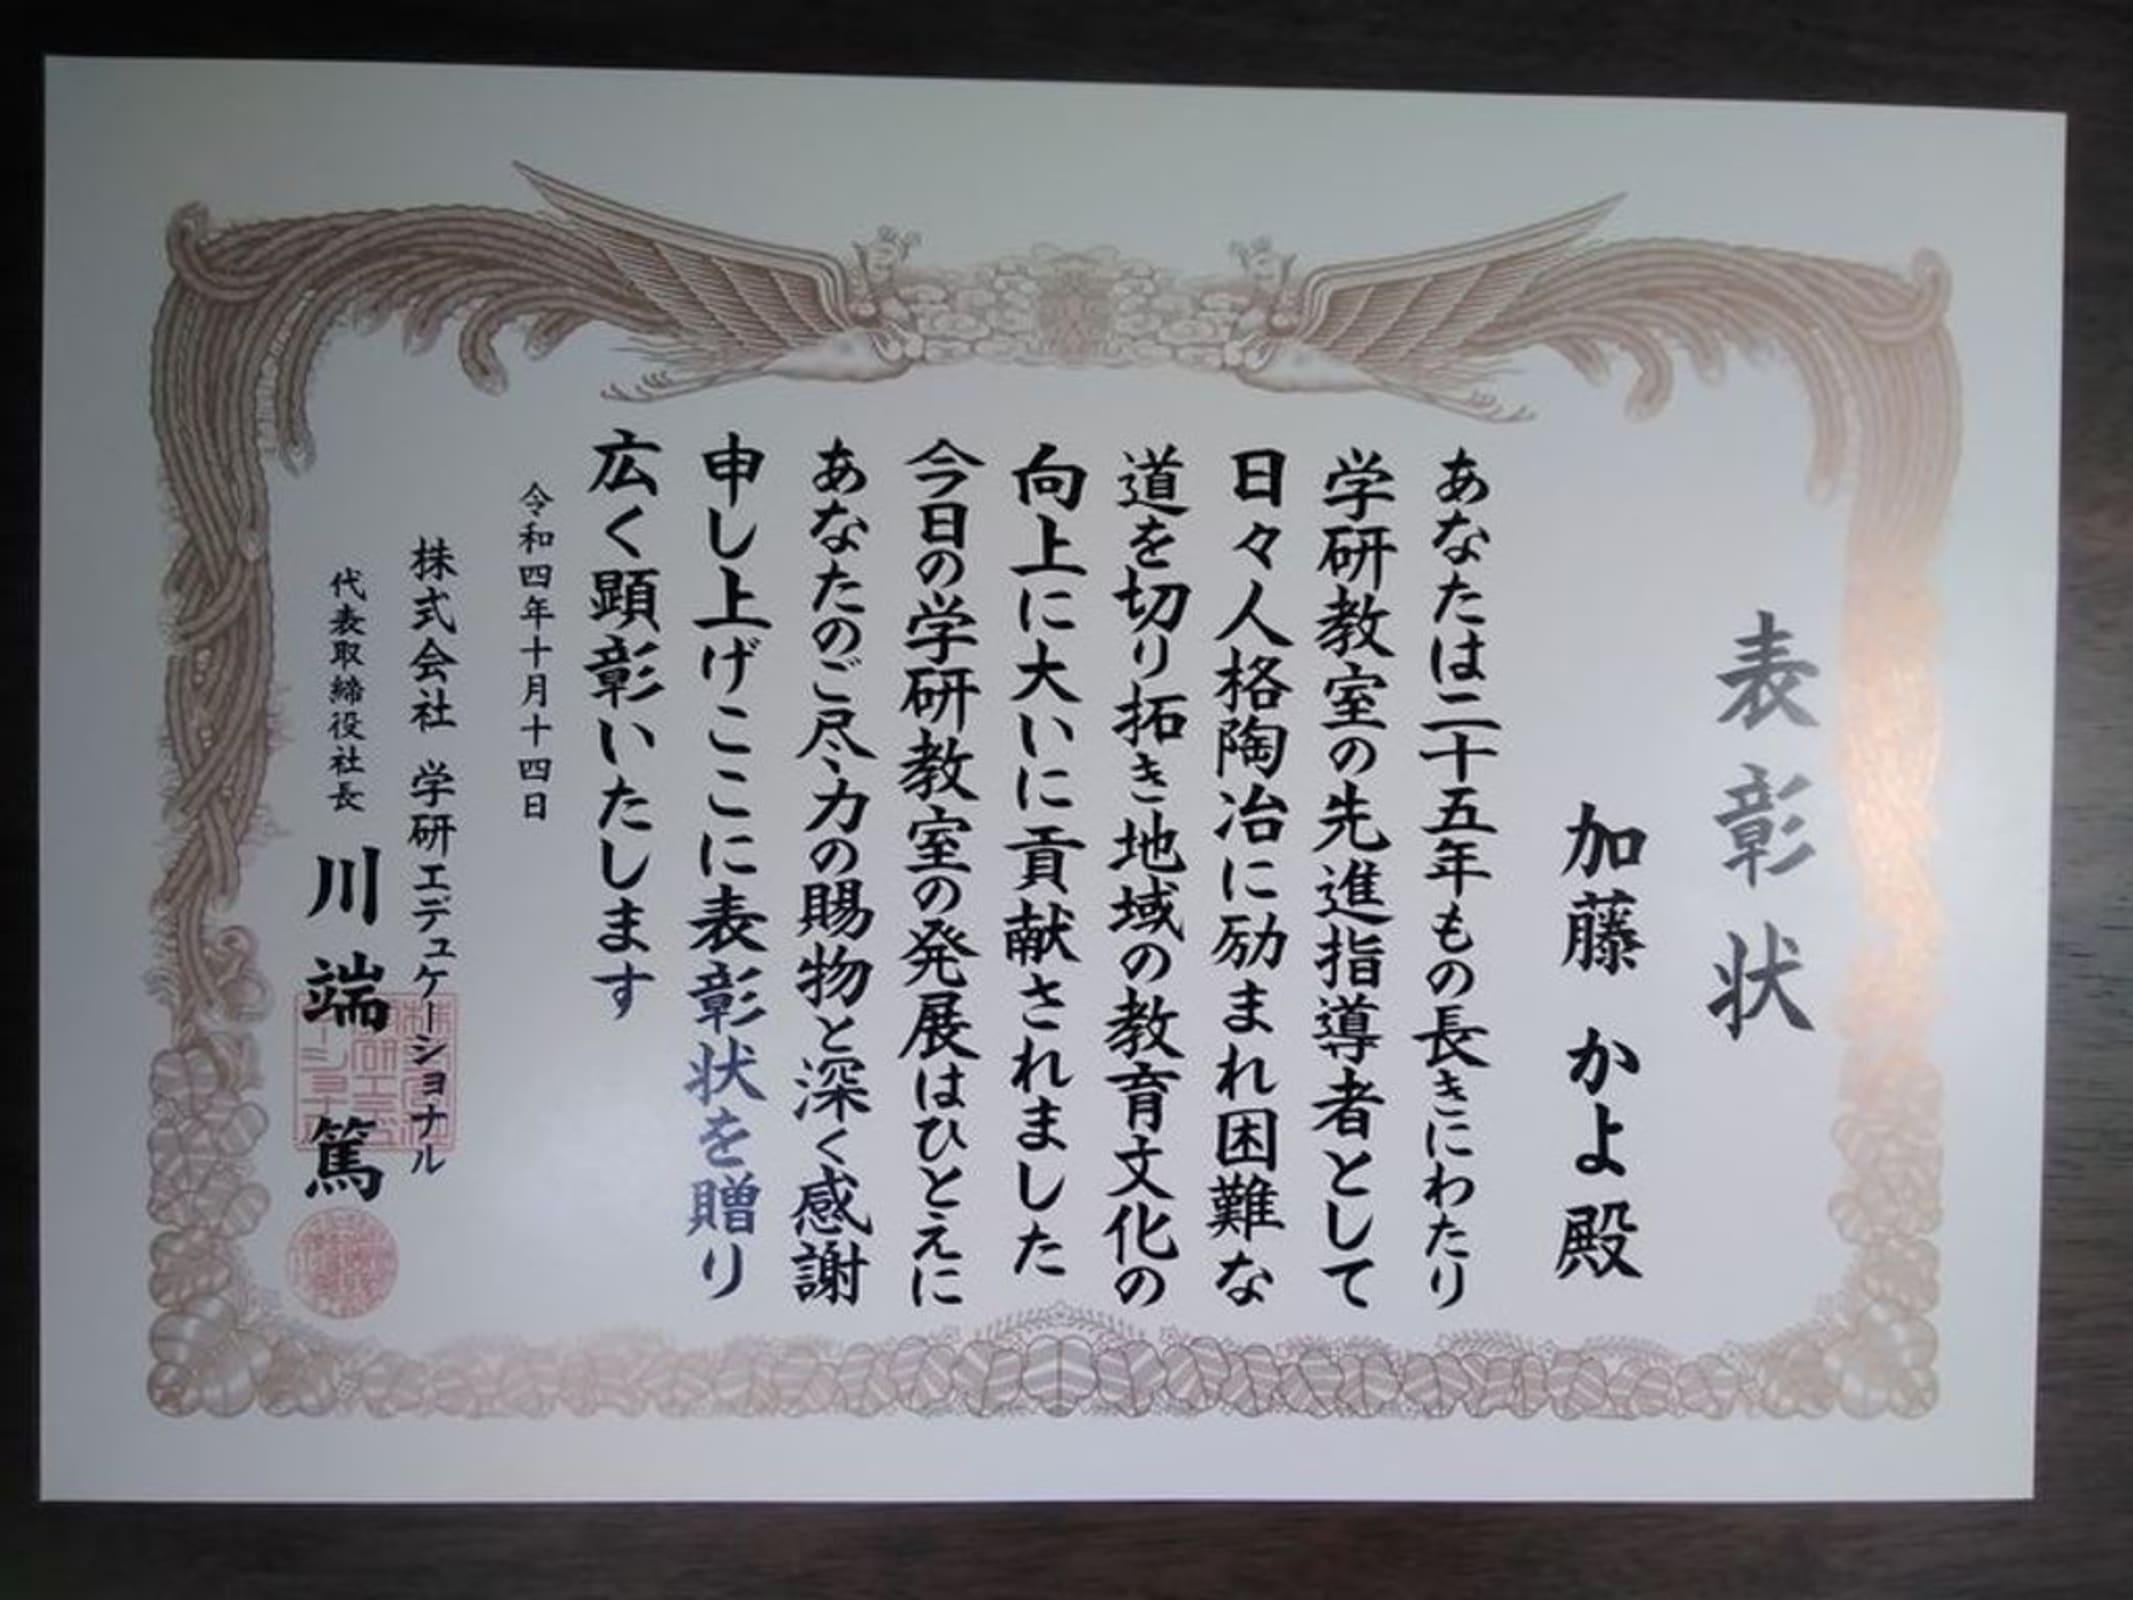 表彰状
加藤 かよ殿
あなたは二十五年もの長きにわたり
学研教室の先進指導者として
日々人格陶冶に励まれ困難な
道を切り拓き地域の教育文化の
向上に大いに貢献されました
今日の学研教室の発展はひとえに
あなたのご尽力の賜物と深く感謝
申し上げここに表彰状を贈り
広く顕彰いたします
令和四年十月十四日
株式会社 学研エデュケーショナル
代表取締役社長 川端 篤